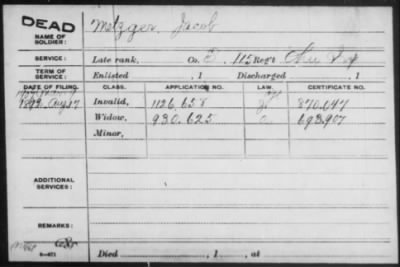 DEAD
NAME OF SOLDIER: Metzger, Jacob
SERVICE: Late rank, Co. 115 Reg't Ohio Inf
TERM OF SERVICE: Enlisted , 1 Discharged , 1
DATE OF FILING. CLASS. APPLICATION NO. LAW. CERTIFICATE NO.
Invalid, 1126.658 870.047
1899, Aug 17 Widow, 930.625 693.907
Minor,
ADDITIONAL SERVICES:
REMARKS:
Died , 1 , at